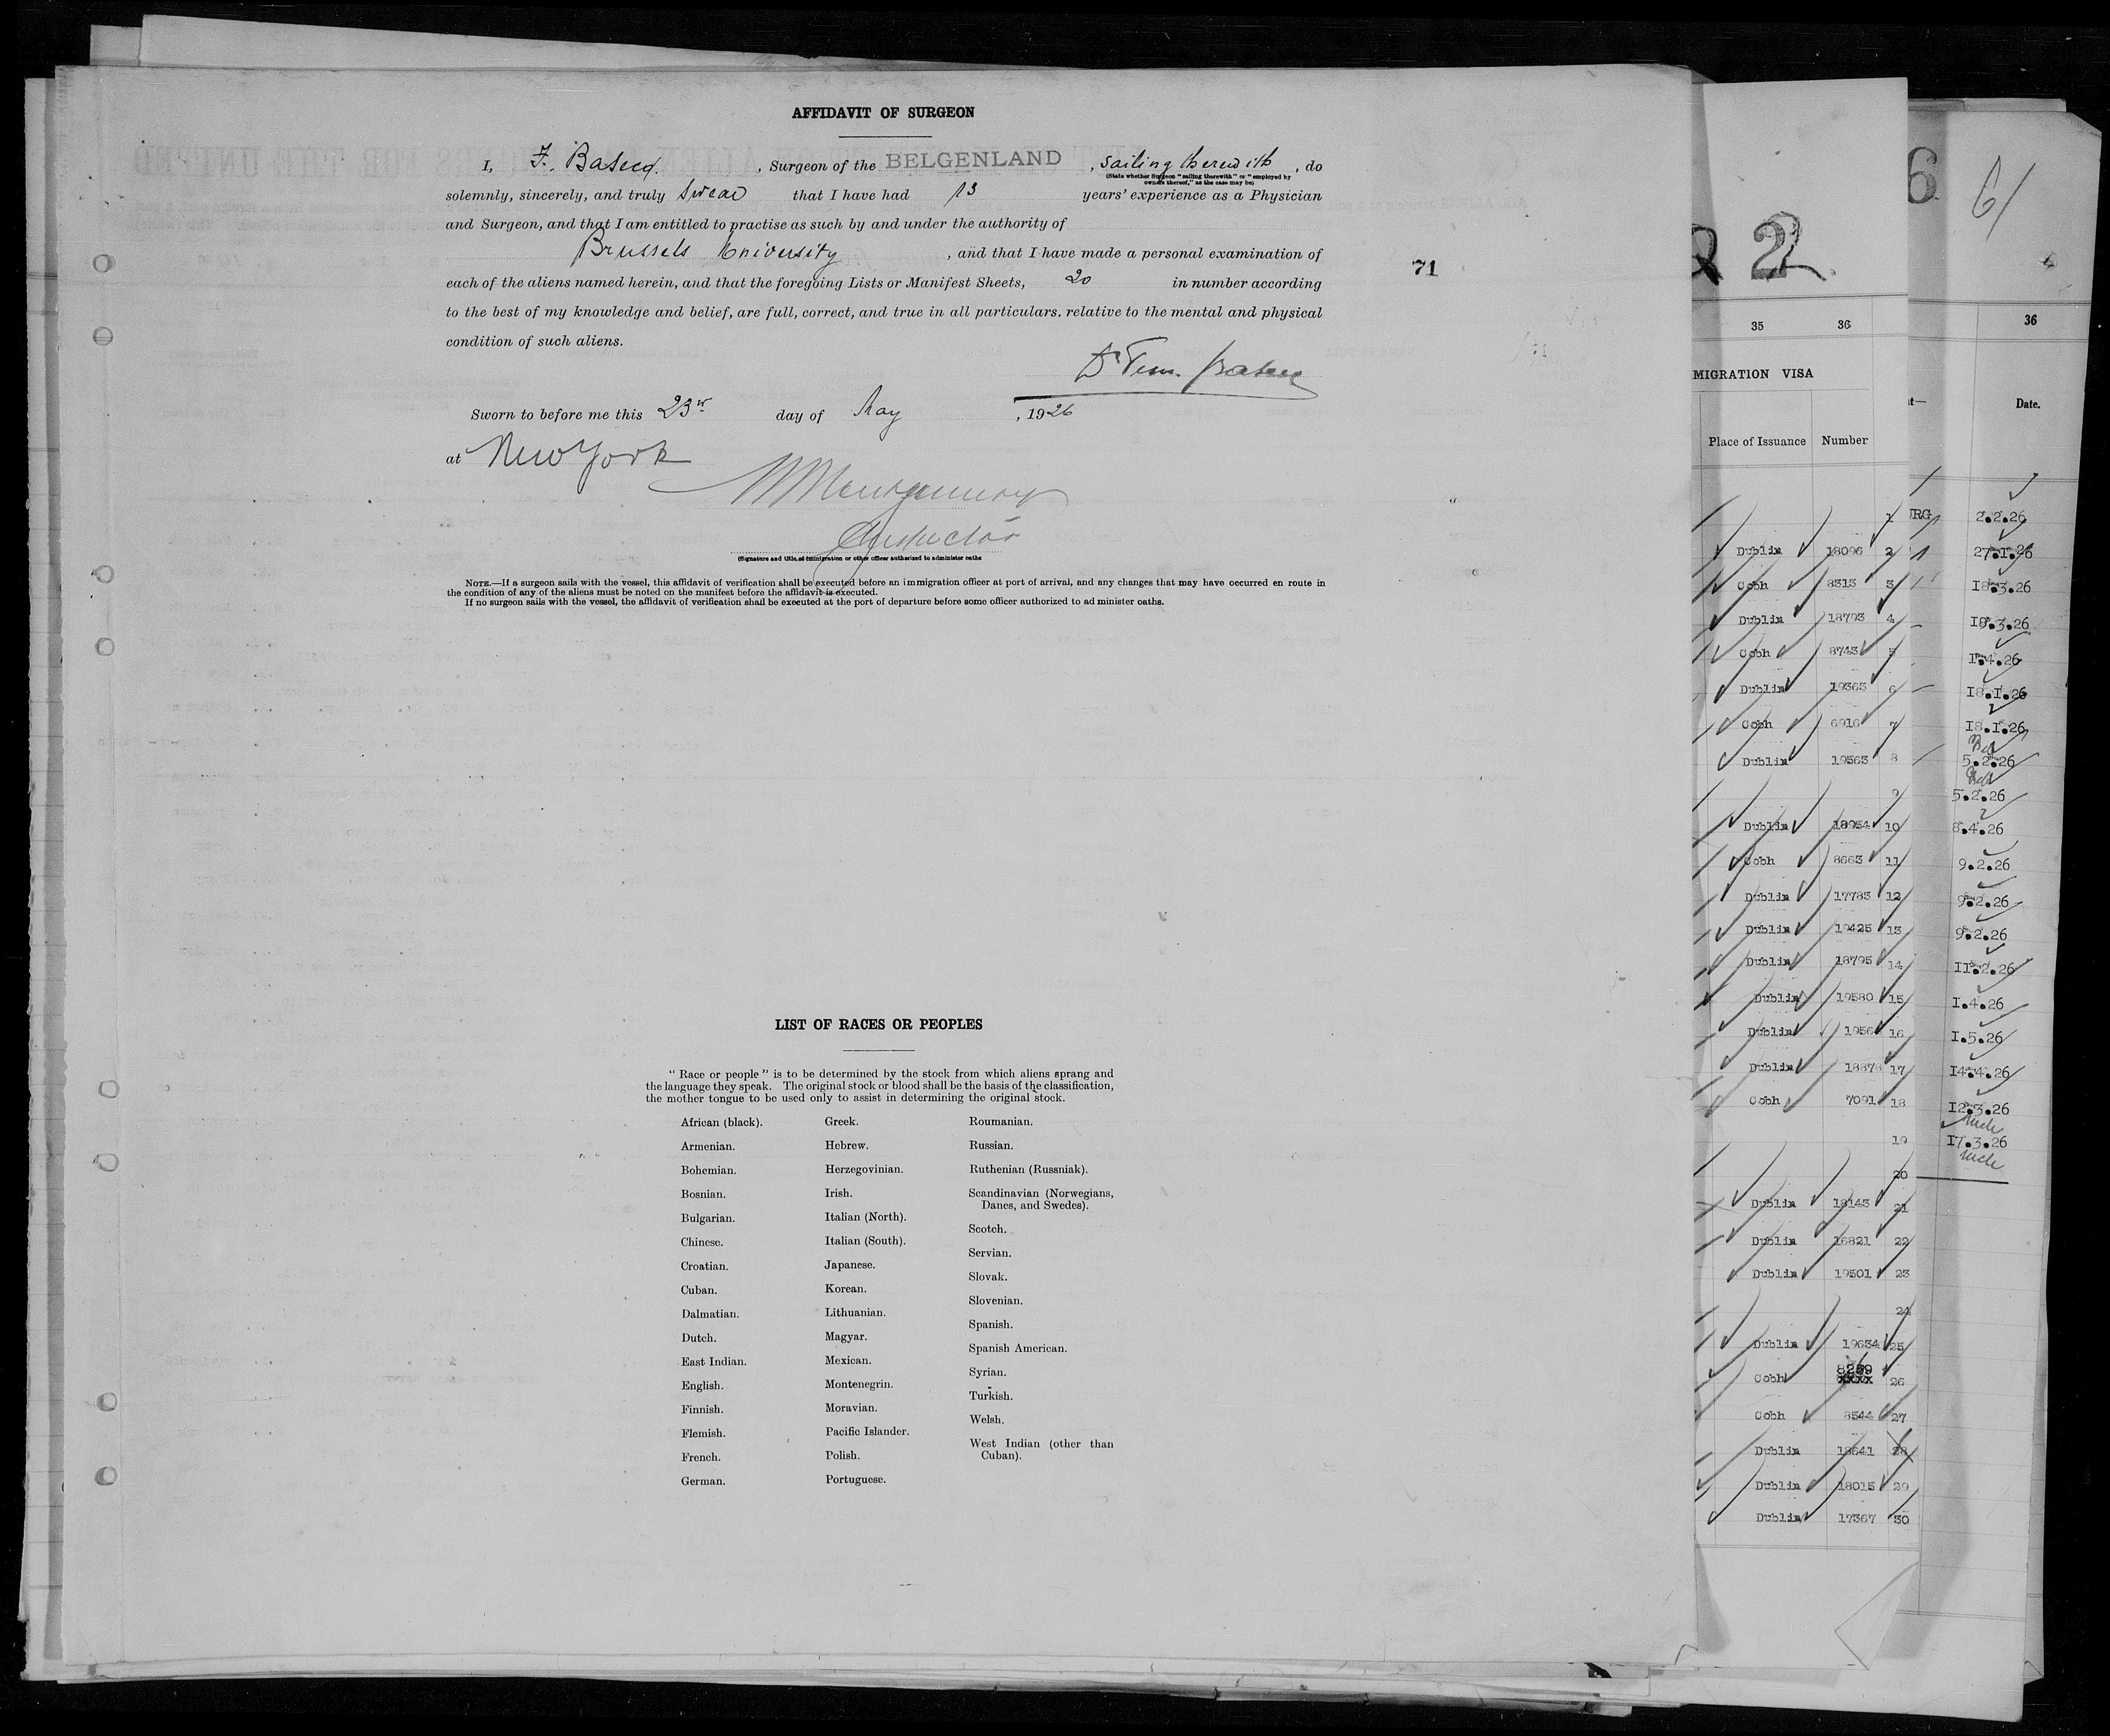 AFFIDAVIT OF SURGEON
I, F. , Surgeon of the BELGENLAND , sailing therewith , do
(State whether Surgeon "sailing therewith" or "employed by
owners thereof," as the case may be)
solemnly, sincerely, and truly swear that I have had 13 years' experience as a Physician
and Surgeon, and that I am entitled to practise as such by and under the authority of
Brussels University , and that I have made a personal examination of
each of the aliens named herein, and that the foregoing Lists or Manifest Sheets, 20 in number according
to the best of my knowledge and belief, are full, correct, and true in all particulars, relative to the mental and physical
condition of such aliens.
Sworn to before me this 23 day of May , 1926
at New York
Montgomery
Inspector
(Signature and title of immigration or other officer authorized to administer oaths
NOTE.—If a surgeon sails with the vessel, this affidavit of verification shall be executed before an immigration officer at port of arrival, and any changes that may have occurred en route in
the condition of any of the aliens must be noted on the manifest before the affidavit is executed.
If no surgeon sails with the vessel, the affidavit of verification shall be executed at the port of departure before some officer authorized to ad minister oaths.
71
LIST OF RACES OR PEOPLES
" Race or people " is to be determined by the stock from which aliens sprang and
the language they speak. The original stock or blood shall be the basis of the classification,
the mother tongue to be used only to assist in determining the original stock.
African (black).
Armenian.
Bohemian.
Bosnian.
Bulgarian.
Chinese.
Croatian.
Cuban.
Dalmatian.
Dutch.
East Indian.
English.
Finnish.
Flemish.
French.
German.
Greek.
Hebrew.
Herzegovinian.
Irish.
Italian (North).
Italian (South).
Japanese.
Korean.
Lithuanian.
Magyar.
Mexican.
Montenegrin.
Moravian.
Pacific Islander.
Polish.
Portuguese.
Roumanian.
Russian.
Ruthenian (Russniak).
Scandinavian (Norwegians,
Danes, and Swedes).
Scotch.
Servian.
Slovak.
Slovenian.
Spanish.
Spanish American.
Syrian.
Turkish.
Welsh.
West Indian (other than
Cuban).
2
35 36
MIGRATION VISA
Place of Issuance Number
1
Dublin 18096 2
Cobh 8313 3
Dublin 18793 4
Cobh 8743 5
Dublin 19363 6
Cobh 6916 7
Dublin 19563 8
9
Dublin 18954 10
Cobh 8663 11
Dublin 17783 12
Dublin 19425 13
Dublin 18795 14
Dublin 19580 15
Dublin 1956 16
Dublin 18878 17
Cobh 7091 18
19
20
Dublin 18143 21
Dublin 16821 22
Dublin 19501 23
24
Dublin 19634 25
Cobh 8259 26
xxxx
Cobh 8544 27
Dublin 18641 28
Dublin 18015 29
Dublin 17367 30
6 61
36
Date.
URG 2.2.26
27.1.26
18.3.26
19.3.26
1.4.26
18.1.26
18.1.26
5.2.26
5.2.26
8.4.26
9.2.26
9.2.26
9.2.26
11.2.26
1.4.26
1.5.26
14.4.26
12.3.26
17.3.26